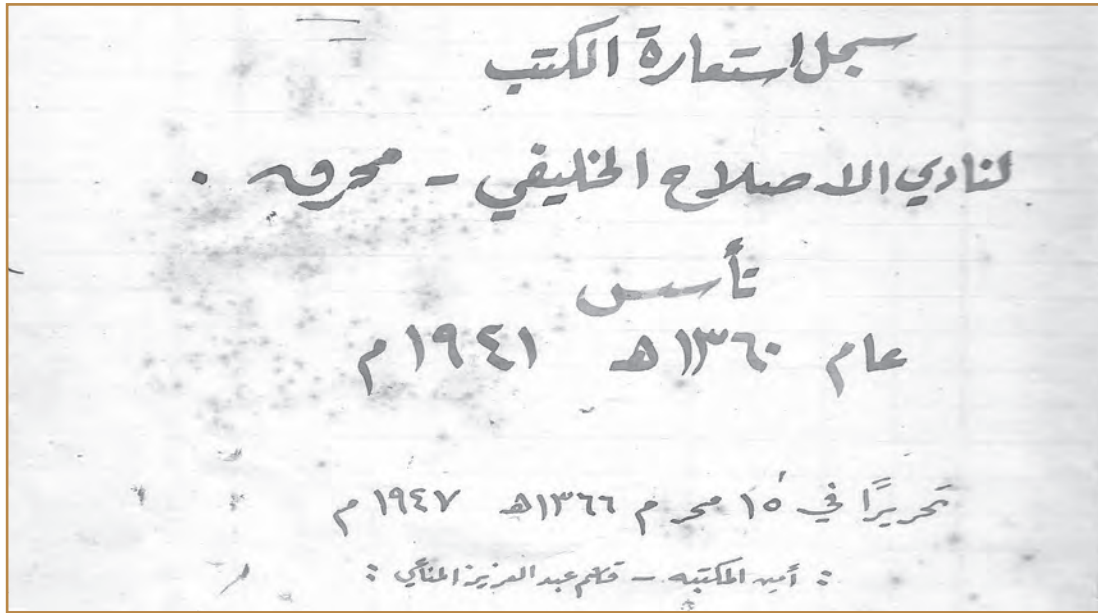 سجل استعارة الكتب
لنادي الاصلاح الخليفي - محرق .
تأسس
عام ١٣٦٠ه ١٩٤١م
تحريرًا في ١٥ محرم ١٣٦٦ه ١٩٤٧م
: أمين المكتبه - قاسم عبد العزيز المناعي :